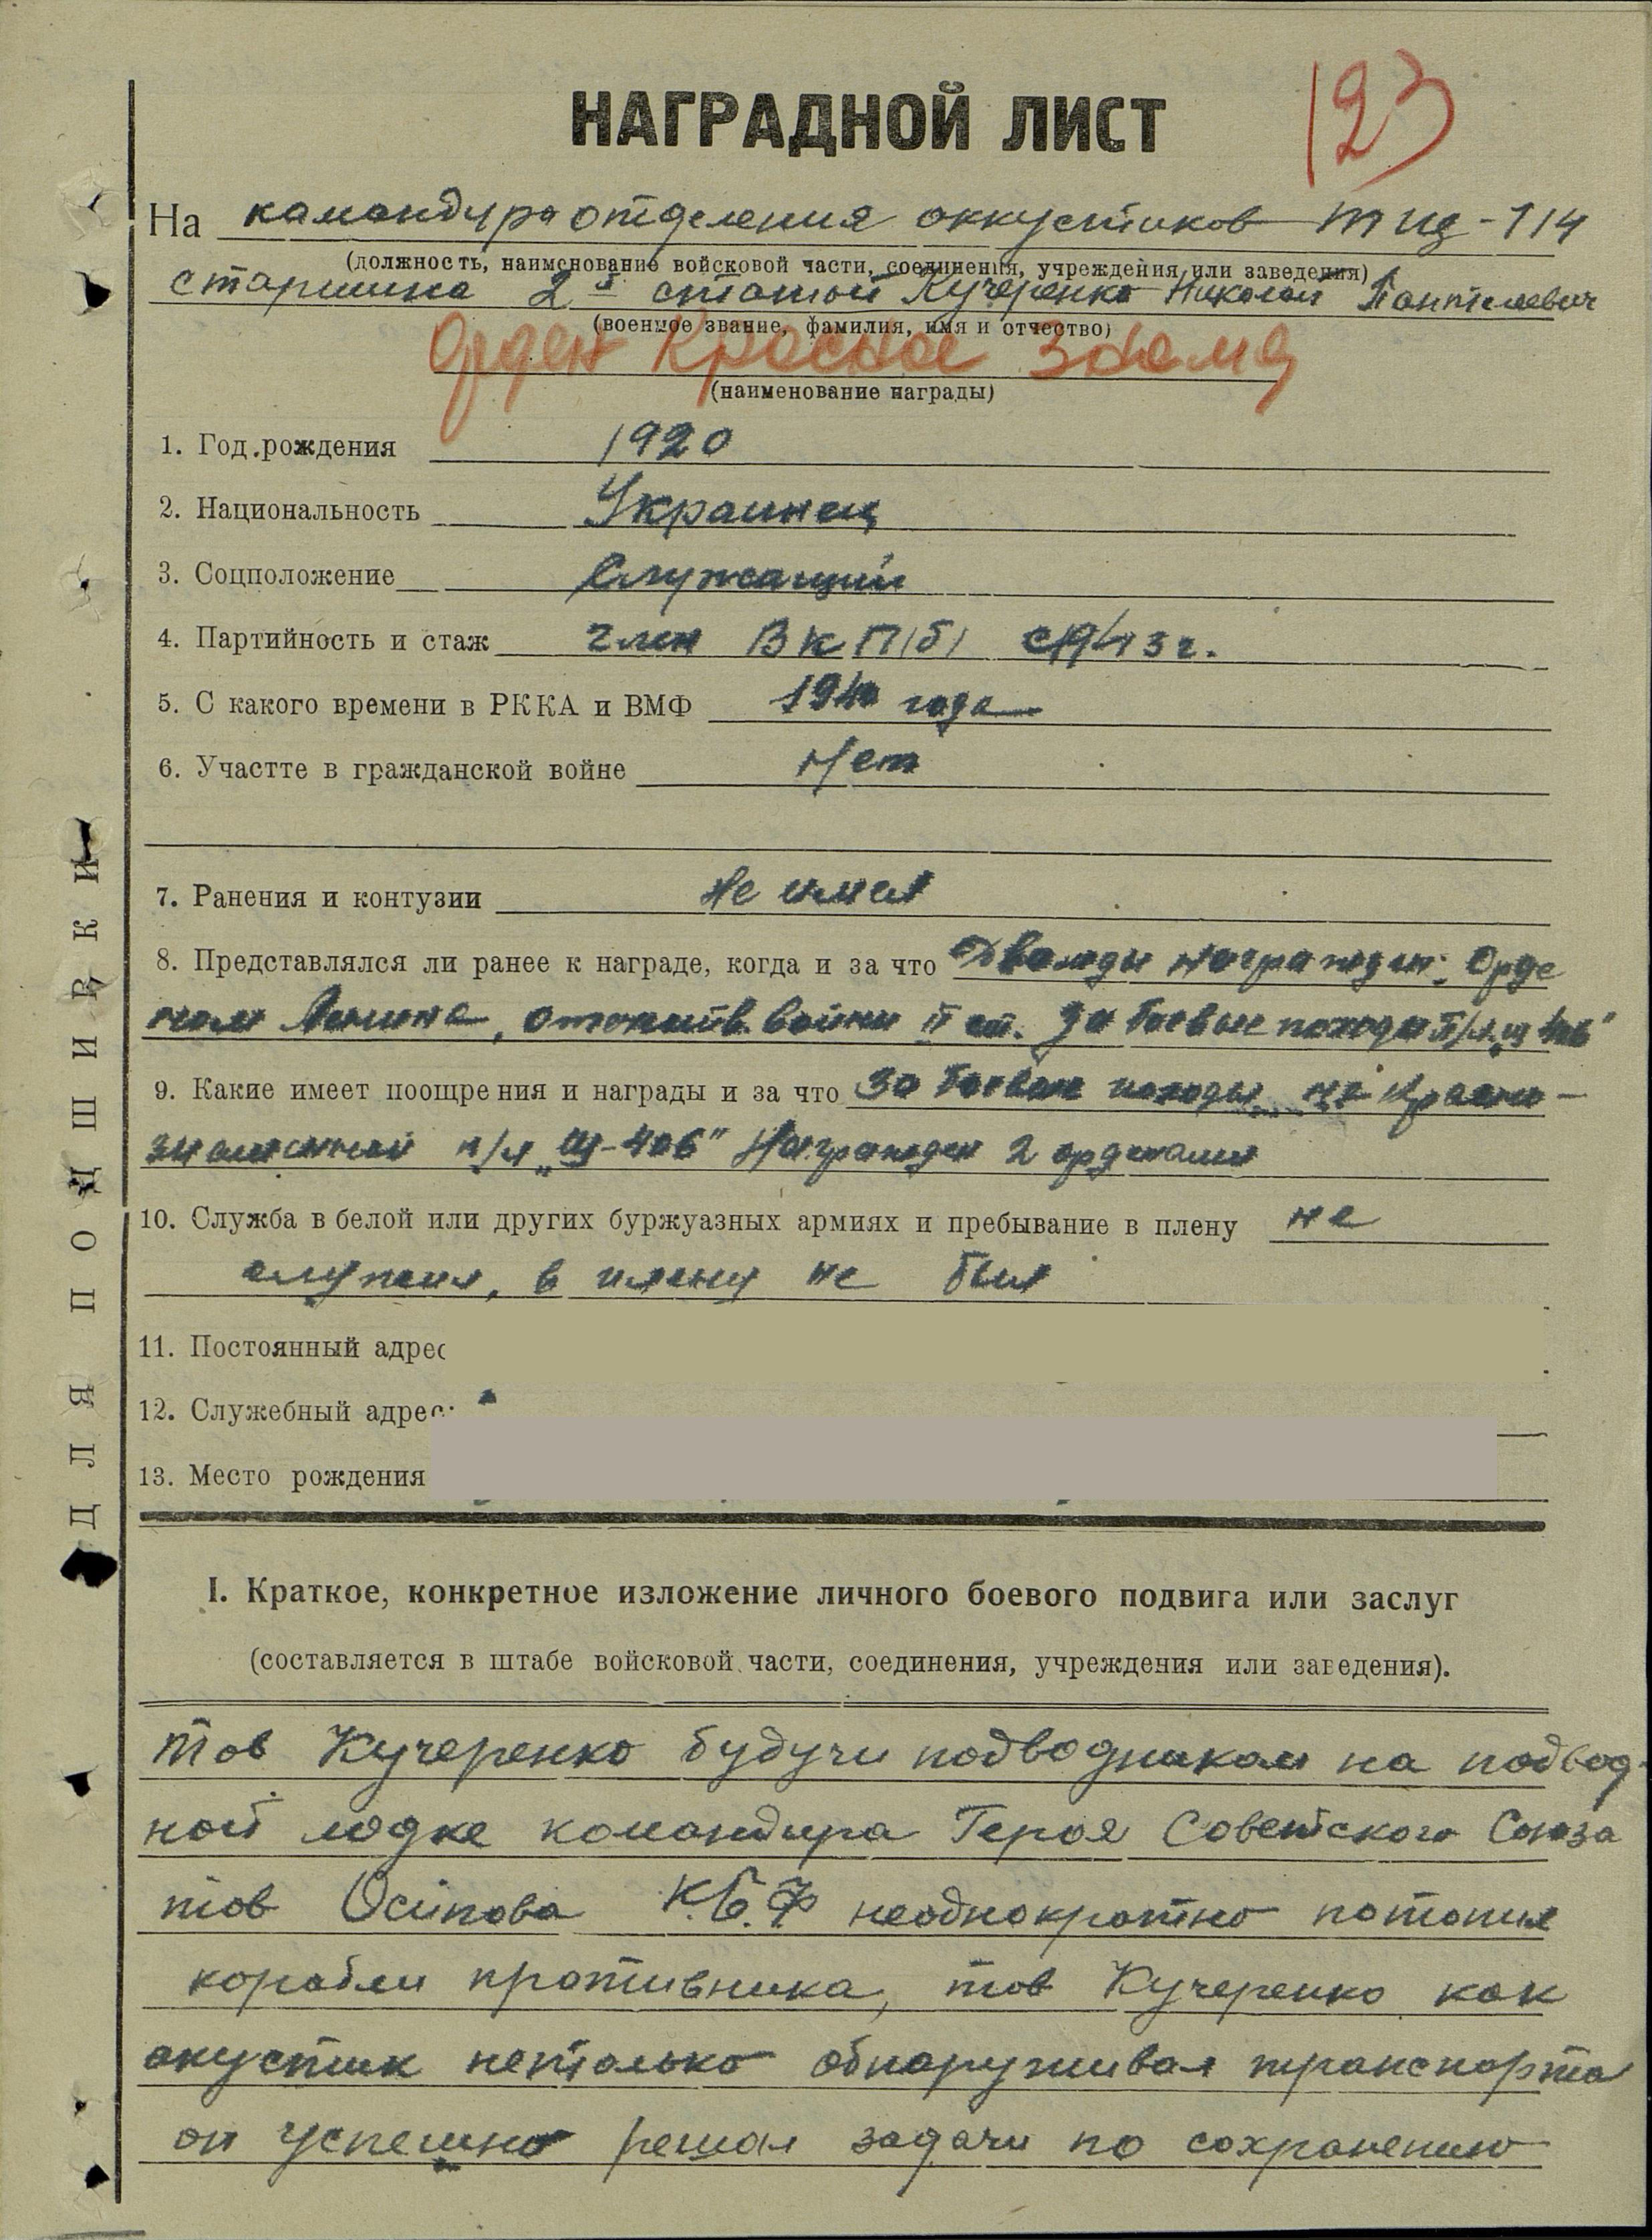 123
НАГРАДНОЙ ЛИСТ
На командира отделения аккустиков ТЩ-114
(должность, наименование войсковой части, соединения, учреждения или заведения)
старшина 2й статьи Кучеренко Николай Пантилеевич
(военное звание, фамилия, имя и отчество)
Орден Красное Знамя
(наименование награды)
1. Год рождения 1920
2. Национальность Украинец
3. Соцположение Служащий
4. Партийность и стаж член ВКП(б) с 1943 г.
5. С какого времени в РККА и ВМФ 1940 года
6. Участте в гражданской войне Нет
7. Ранения и контузии не имел
8. Представлялся ли ранее к награде, когда и за что Дважды награжден: Орде
ном Ленина, отечеств. войны II ст. За боевые походы п/л „Щ 406"
9. Какие имеет поощрения и награды и за что За боевые походы на Красно-
знаменной п/л „Щ-406" Награжден 2 орденами
10. Служба в белой или других буржуазных армиях и пребывание в плену не
служил, в плену не был
11. Постоянный адрес
12. Служебный адрес:
13. Место рождения
ДЛЯ ПОДШИВКИ
I. Краткое, конкретное изложение личного боевого подвига или заслуг
(составляется в штабе войсковой части, соединения, учреждения или заведения).
Тов Кучеренко будучи подводником на подвод-
ной лодке командира Героя Советского Союза
тов Осипова К.Б.Ф неоднократно потопил
корабли противника, тов Кучеренко как
акустик нетолько обнаруживал транспорта
он успешно решал задачи по сохранению